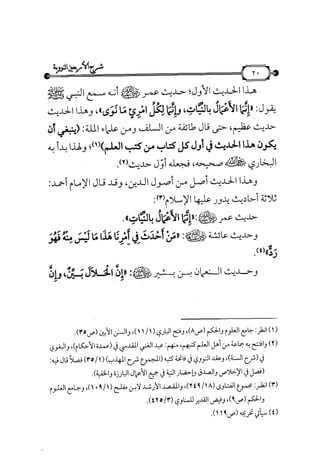 شرح الأربعين النووية
٢٠
هذا الحديث الأول؛ حديث عمر رضي الله عنه أنه سمع النبي ﷺ
يقول: «إنَّما الأَعْمَالُ بالنِّيَّاتِ، وَإنَّما لِكُلِّ امْرِئٍ مَا نَوَى»، وهذا الحديث
حديث عظيم، حتى قال طائفة من السلف ومن علماء الملة: (ينبغي أن
يكون هذا الحديث في أول كل كتاب من كتب العلم)(١)، ولهذا بدأ به
البخاري رحمه الله صحيحه، فجعله أوّل حديث(٢).
وهذا الحديث أصل من أصول الدين، وقد قال الإمام أحمد:
ثلاثة أحاديث يدور عليها الإسلام(٣):
حديث عمر رضي الله عنه: «إنَّما الأَعْمَالُ بالنِّيَّاتِ».
وحديث عائشة رضي الله عنها: «مَنْ أَحْدَثَ في أَمْرِنَا هَذَا مَا لَيْسَ مِنْهُ فَهُوَ
رَدٌّ»(٤).
وحديث النعمان بن بشير رضي الله عنه: «إنَّ الْحَلَالَ بَيِّنٌ، وَإنَّ
(١) انظر: جامع العلوم والحكم (ص٨)، وفتح الباري (١/ ١١)، والسنن الأبين (ص٣٥).
(٢) وافتتح به جماعة من أهل العلم كتبهم، منهم: عبد الغني المقدسي في (عمدة الأحكام)، والبغوي
في (شرح السنة)، وعقد النووي في فاتحة كتبه (المجموع شرح المهذب) (١/ ٣٥) فصلاً قال فيه:
(فصل في الإخلاص والصدق وإحضار النية في جميع الأعمال البارزة والخفية).
(٣) انظر: مجموع الفتاوى (١٨/ ٢٤٩)، والمقصد الأرشد لابن مفلح (١/ ١٠٩)، وجامع العلوم
والحكم (ص٩)، وفيض القدير للمناوي (٣/ ٤٢٥).
(٤) سيأتي تخريجه (ص١١٩).